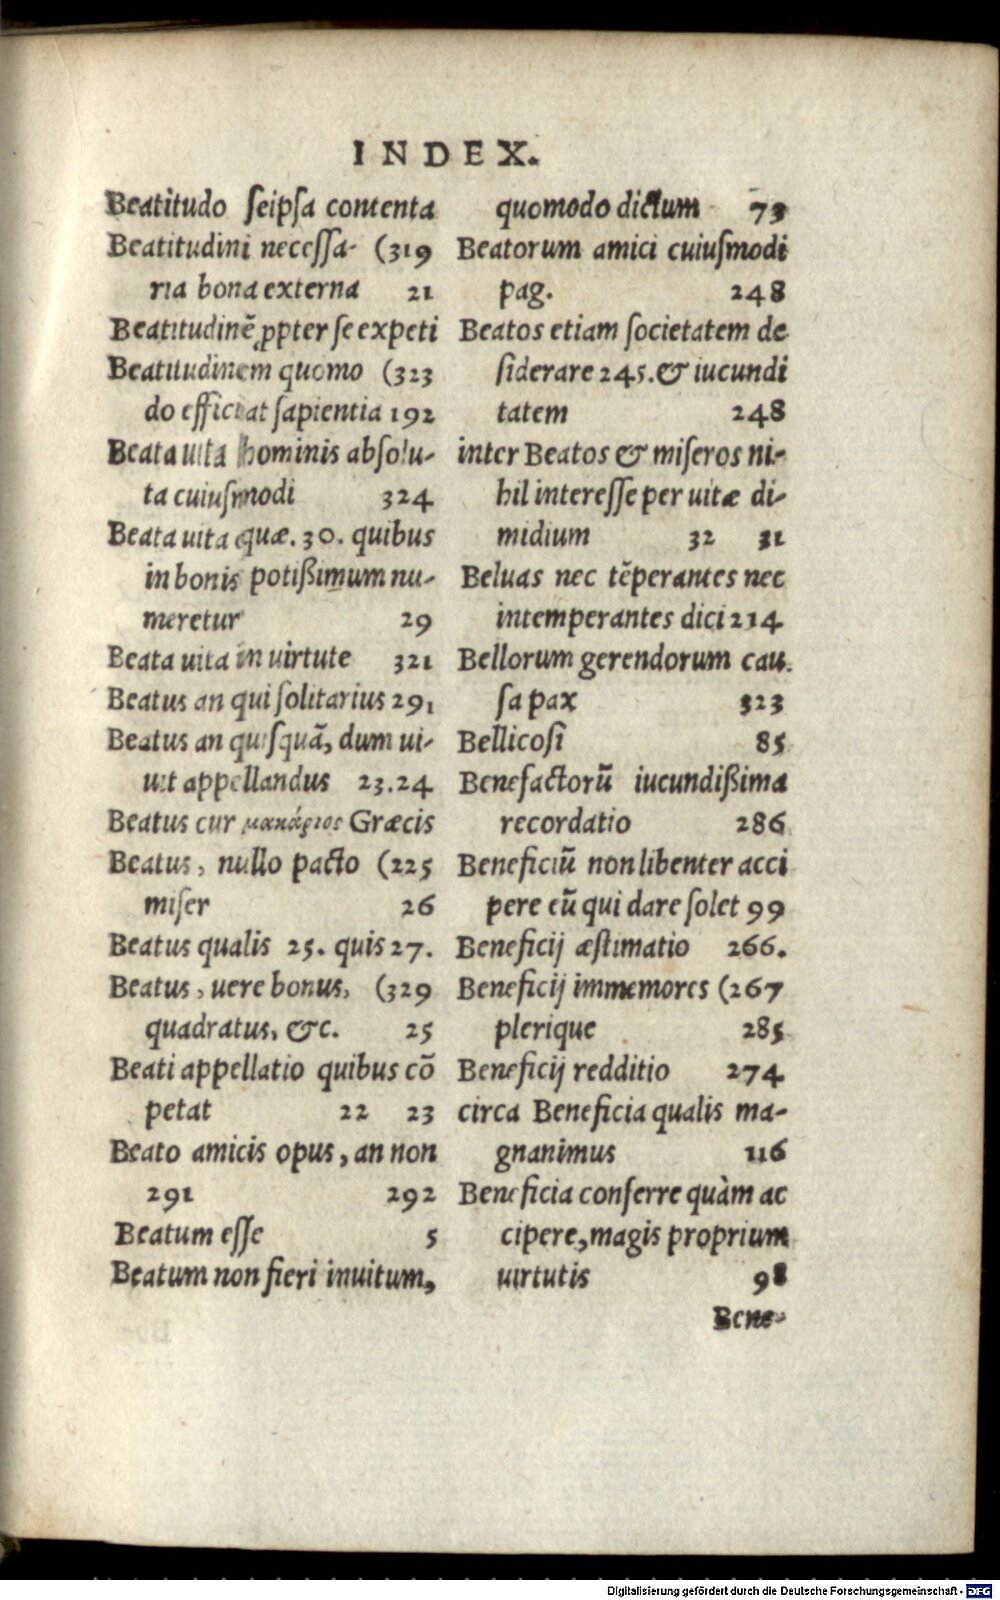 INDEX.
Beatitudo ſeipſa contenta
Beatitudini neceſſa- (319
ria bona externa 21
Beatitudinē ꝓpter ſe expeti
Beatitudinem quomo (323
do efficiat ſapientia 192
Beata uita hominis abſolu-
ta cuiuſmodi 324
Beata uita quæ. 30. quibus
in bonis potißimum nu-
meretur 29
Beata uita in uirtute 321
Beatus an qui ſolitarius 291
Beatus an quiſquā, dum ui-
uit appellandus 23.24
Beatus cur μακάριος Græcis
Beatus, nullo pacto (225
miſer 26
Beatus qualis 25. quis 27.
Beatus, uere bonus, (329
quadratus, &c. 25
Beati appellatio quibus cō
petat 22 23
Beato amicis opus, an non
291 292
Beatum eſſe 5
Beatum non fieri inuitum,
quomodo dictum 73
Beatorum amici cuiuſmodi
pag. 248
Beatos etiam ſocietatem de
ſiderare 245. & iucundi
tatem 248
inter Beatos & miſeros ni-
hil intereſſe per uitæ di-
midium 32 31
Beluas nec tēperantes nec
intemperantes dici 214
Bellorum gerendorum cau.
ſa pax 323
Bellicoſi 85
Benefactorū iucundißima
recordatio 286
Beneficiū non libenter acci
pere eū qui dare ſolet 99
Beneficij æſtimatio 266.
Beneficij immemores (267
plerique 285
Beneficij redditio 274
circa Beneficia qualis ma-
gnanimus 116
Beneficia conferre quàm ac
cipere, magis proprium
uirtutis 98
Bene-
Digitalisierung gefördert durch die Deutsche Forschungsgemeinschaft - DFG